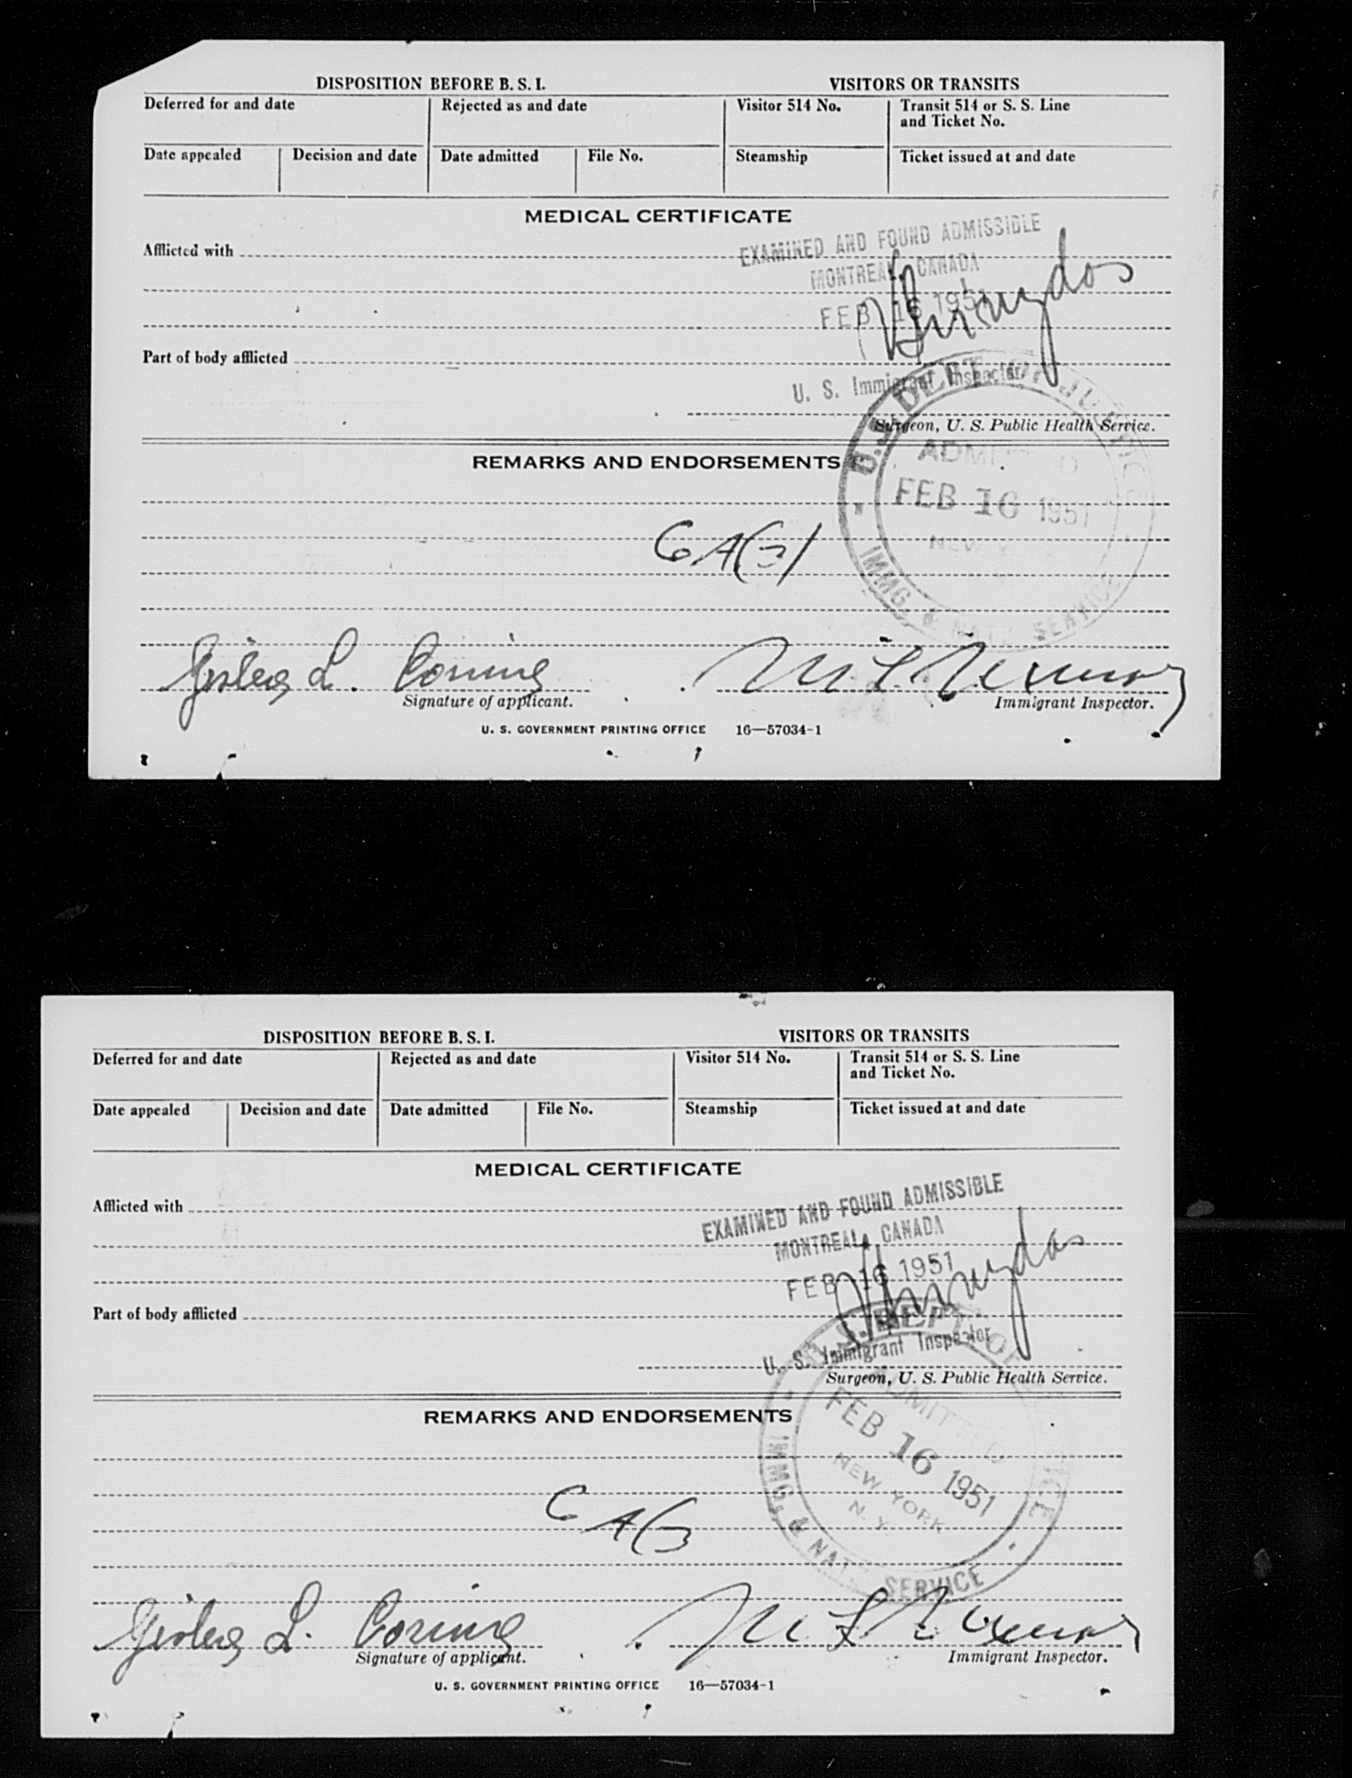 DISPOSITION BEFORE B. S. I.
VISITORS OR TRANSITS
Deferred for and date
Rejected as and date
Visitor 514 No.
Transit 514 or S. S. Line
and Ticket No.
Date appealed
Decision and date
Date admitted
File No.
Steamship
Ticket issued at and date
MEDICAL CERTIFICATE
Afflicted with
EXAMINED AND FOUND ADMISSIBLE
MONTREAL, CANADA
FEB 16 1951
Part of body afflicted
U. S. Immigrant Inspector
Surgeon, U. S. Public Health Service.
U.S. DEPT. OF JUSTICE
REMARKS AND ENDORSEMENTS
ADMITTED
FEB 16 1951
NEW YORK
IMMG. & NATZ. SERVICE
L.
Signature of applicant.
Immigrant Inspector.
U. S. GOVERNMENT PRINTING OFFICE 16—57034-1
DISPOSITION BEFORE B. S. I.
VISITORS OR TRANSITS
Deferred for and date
Rejected as and date
Visitor 514 No.
Transit 514 or S. S. Line
and Ticket No.
Date appealed
Decision and date
Date admitted
File No.
Steamship
Ticket issued at and date
MEDICAL CERTIFICATE
Afflicted with
EXAMINED AND FOUND ADMISSIBLE
MONTREAL, CANADA
FEB 16 1951
Part of body afflicted
U. S. Immigrant Inspector
Surgeon, U. S. Public Health Service.
U.S. DEPT. OF JUSTICE
REMARKS AND ENDORSEMENTS
ADMITTED
FEB 16 1951
NEW YORK
N. Y.
IMMG. & NATZ. SERVICE
L.
Signature of applicant.
Immigrant Inspector.
U. S. GOVERNMENT PRINTING OFFICE 16—57034-1